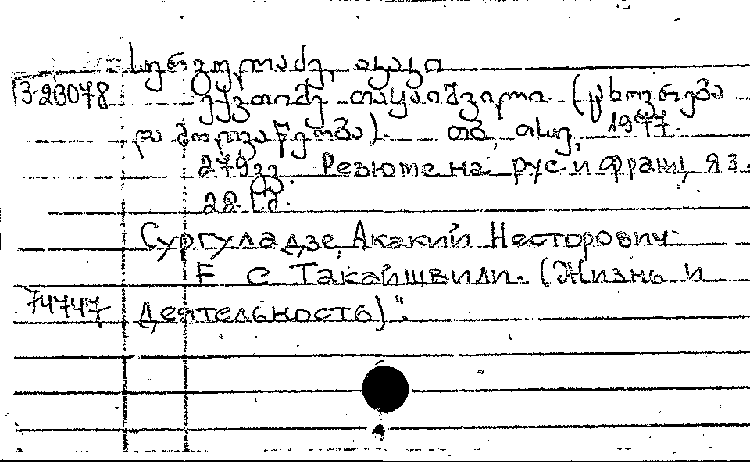 სურგულაძე, აკაკი
3-23078 ექვთიმე თაყაიშვილი. (ცხოვრება
და მოღვაწეობა). თბ, თსუ, 1977.
279 გვ. Резюме на рус. и франц. яз.
Сургуладзе, Акакий Несторович
Е С Такайшвили. (Жизнь и
74747 деятельность)".